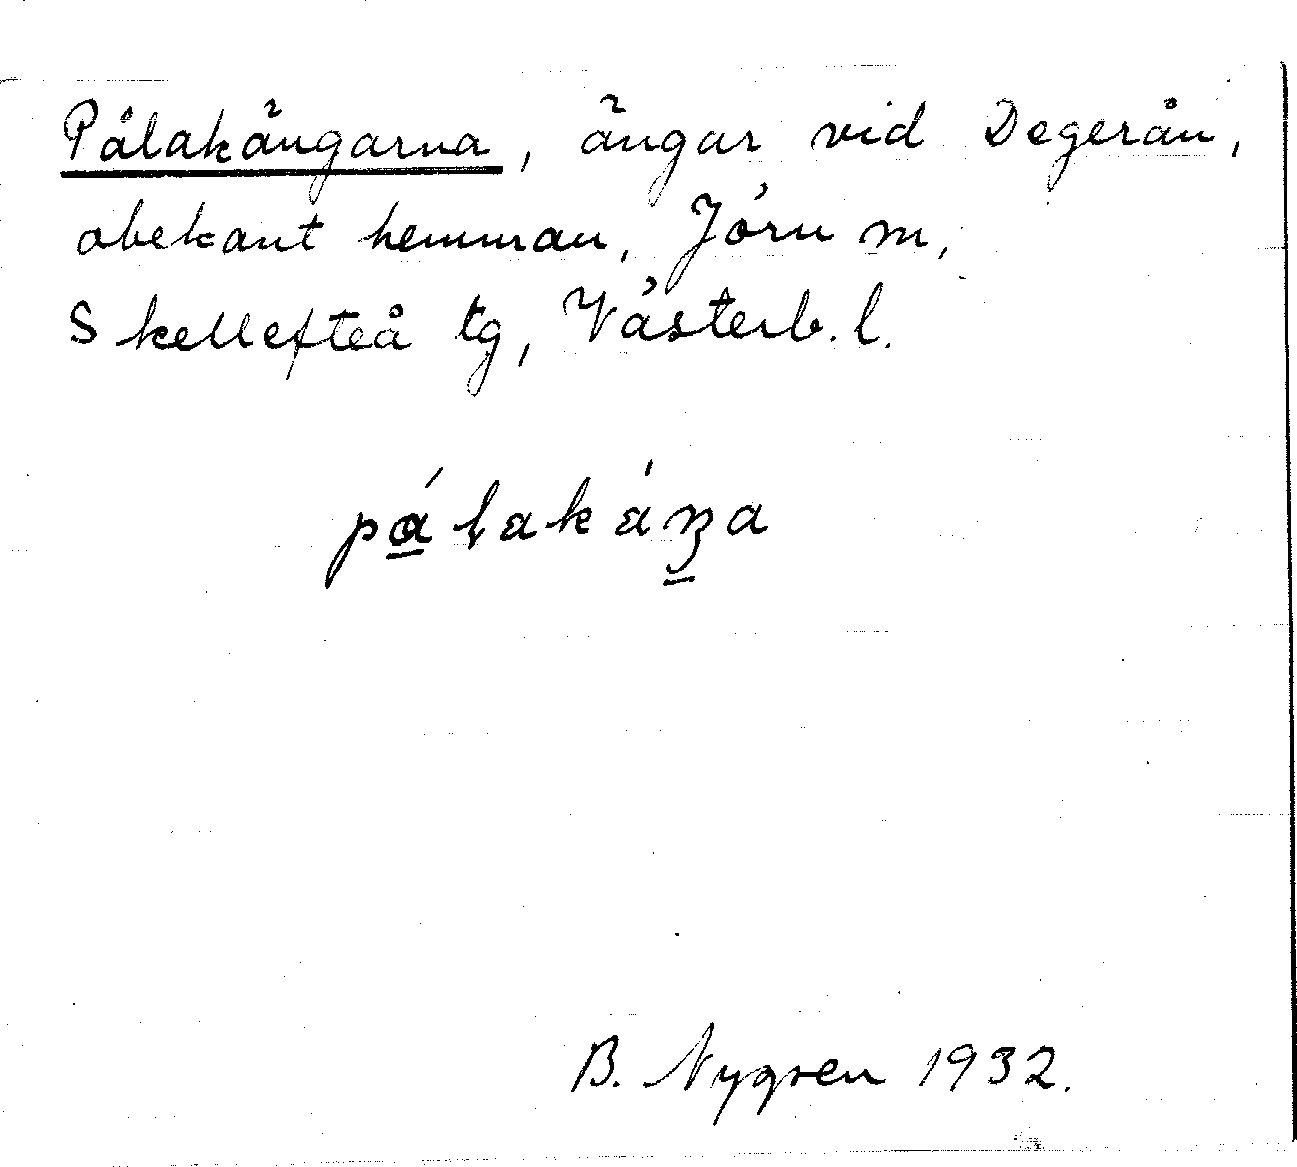 Pålakängarna, ängar vid Degerån,
obekant hemman, Jörn m,
Skellefteå tg, Västerb. l.
B. Nygren 1932.